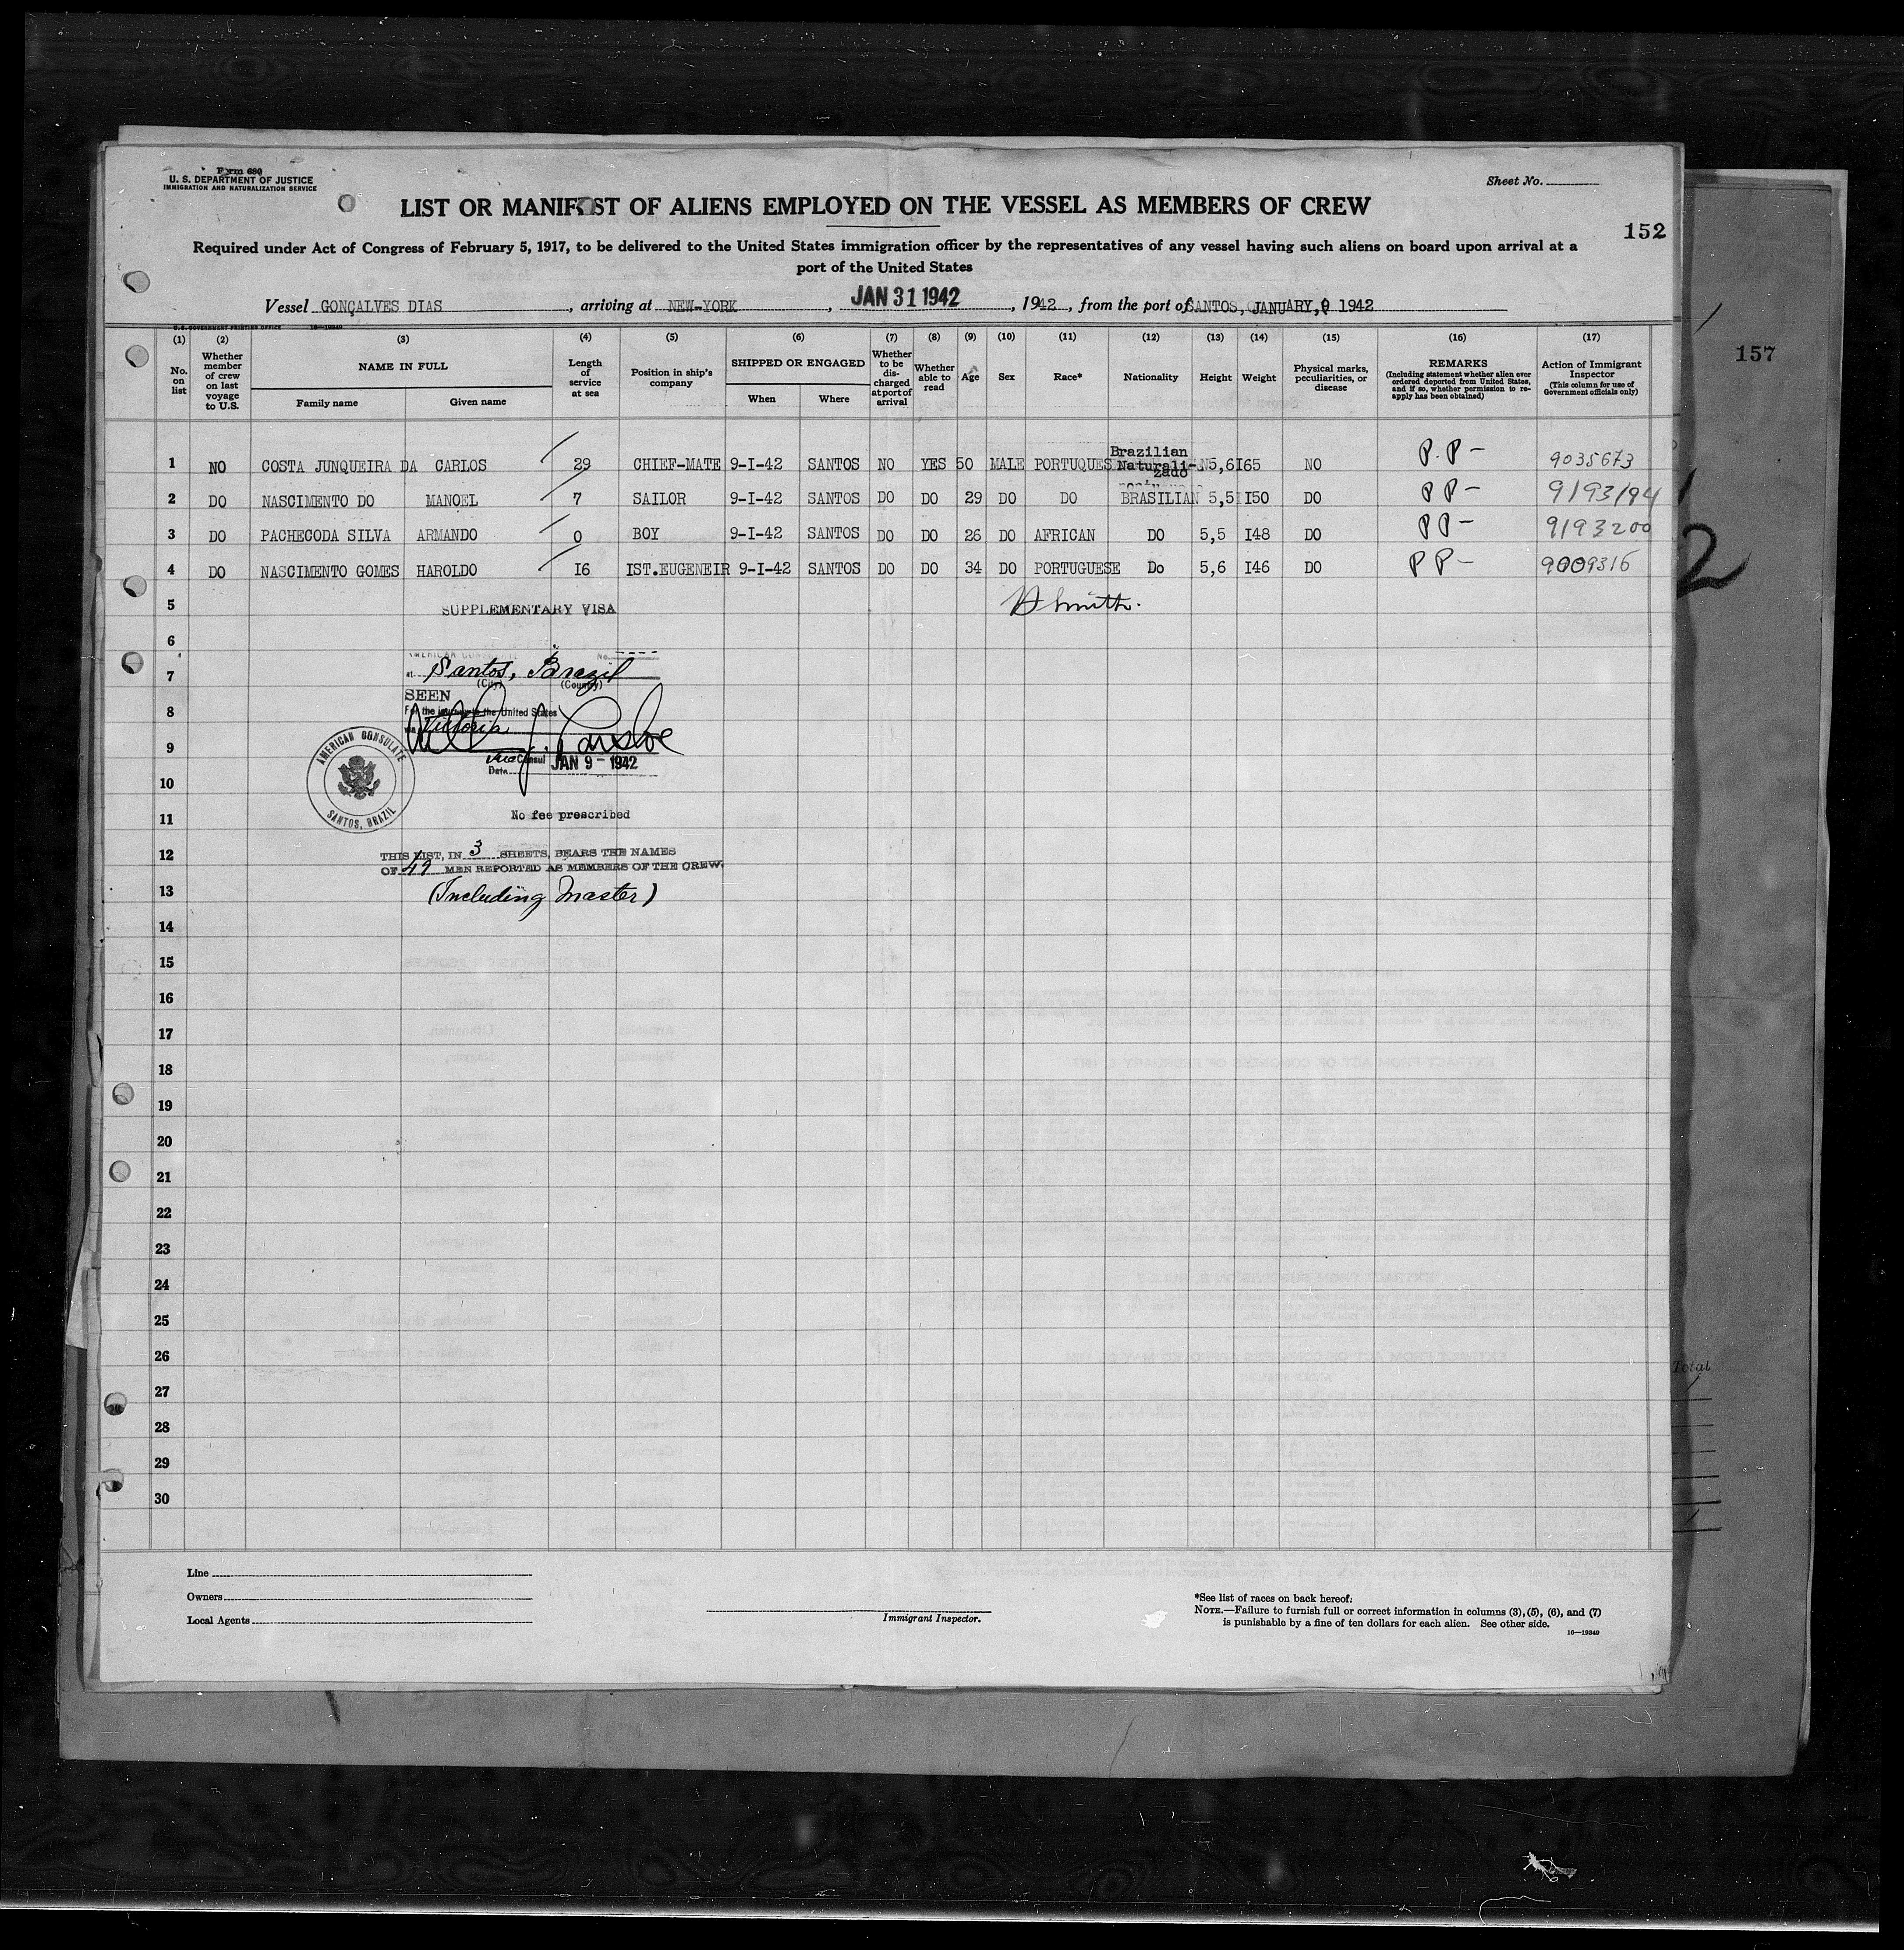 Form 680
U. S. DEPARTMENT OF JUSTICE
IMMIGRATION AND NATURALIZATION SERVICE
Sheet No.
LIST OR MANIFEST OF ALIENS EMPLOYED ON THE VESSEL AS MEMBERS OF CREW
152
Required under Act of Congress of February 5, 1917, to be delivered to the United States immigration officer by the representatives of any vessel having such aliens on board upon arrival at a
port of the United States
Vessel GONÇALVES DIAS, arriving at NEW-YORK, JAN 31 1942, 1942, from the port of SANTOS, JANUARY, 9 1942
U. S. GOVERNMENT PRINTING OFFICE 16—19349
(1) (2) (3) (4) (5) (6) (7) (8) (9) (10) (11) (12) (13) (14) (15) (16) (17)
No. on list
Whether member of crew on last voyage to U.S.
NAME IN FULL
Family name Given name
Length of service at sea
Position in ship's company
SHIPPED OR ENGAGED
When Where
Whether to be discharged at port of arrival
Whether able to read
Age
Sex
Race*
Nationality
Height
Weight
Physical marks, peculiarities, or disease
REMARKS
(Including statement whether alien ever ordered deported from United States, and if so, whether permission to reapply has been obtained)
Action of Immigrant Inspector
(This column for use of Government officials only)
1 NO COSTA JUNQUEIRA DA CARLOS 29 CHIEF-MATE 9-I-42 SANTOS NO YES 50 MALE PORTUQUES Brazilian Naturali-zado 5,6 I65 NO P.P – 9035673
2 DO NASCIMENTO DO MANOEL 7 SAILOR 9-I-42 SANTOS DO DO 29 DO DO BRASILIAN 5,5 I50 DO PP – 9193194
3 DO PACHECODA SILVA ARMANDO 0 BOY 9-I-42 SANTOS DO DO 26 DO AFRICAN DO 5,5 I48 DO PP – 9193200
4 DO NASCIMENTO GOMES HAROLDO I6 IST.EUGENEIR 9-I-42 SANTOS DO DO 34 DO PORTUGUESE Do 5,6 I46 DO PP – 9009316
5 SUPPLEMENTARY VISA Smith.
6
AMERICAN CONSULATE No.
7 at Santos, Brazil
(City) (Country)
SEEN
8 For the journey to the United States
via Victoria
9
Vice Consul
Date JAN 9 – 1942
AMERICAN CONSULATE
SANTOS, BRAZIL
10
11 No fee prescribed
12 THIS LIST, IN 3 SHEETS, BEARS THE NAMES
OF 49 MEN REPORTED AS MEMBERS OF THE CREW.
13 (Including Master)
14
15
16
17
18
19
20
21
22
23
24
25
26
27
28
29
30
Line
Owners
Local Agents
Immigrant Inspector.
*See list of races on back hereof.
NOTE.—Failure to furnish full or correct information in columns (3), (5), (6), and (7)
is punishable by a fine of ten dollars for each alien. See other side.
16—19349
157
2
Total